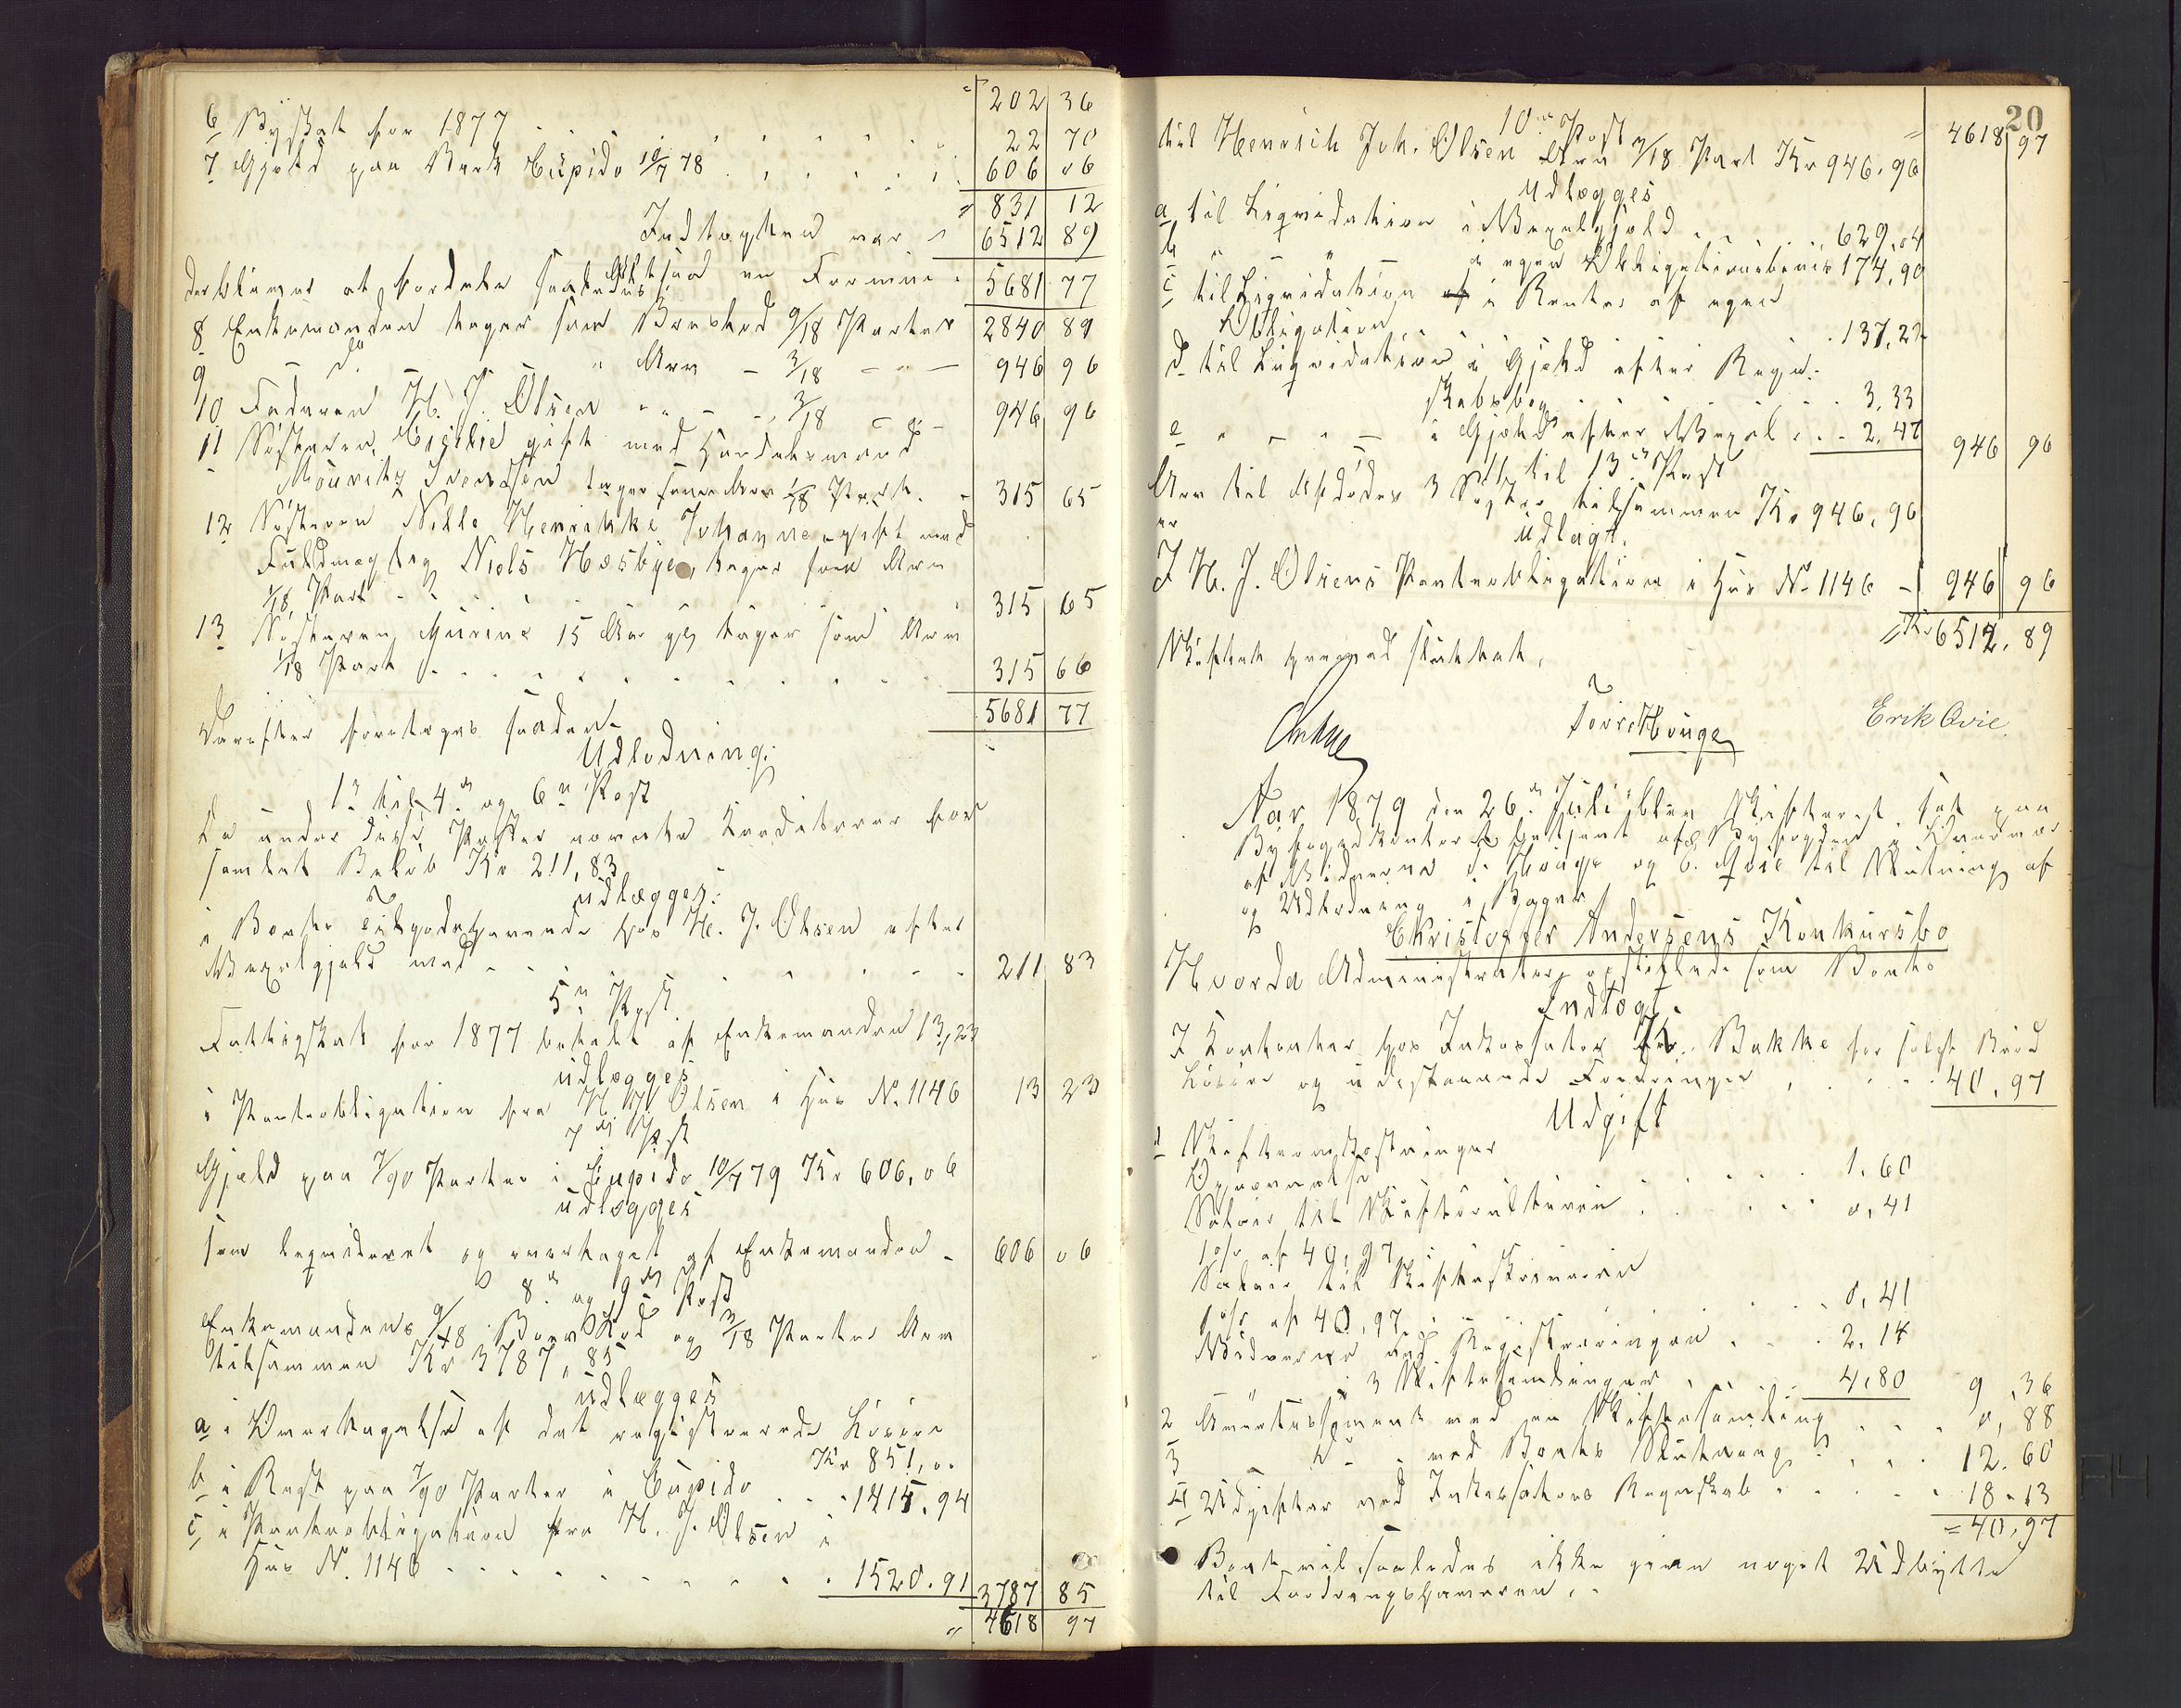 202 36
6 Byskat for 1877 22 70
7 Gjeld paa Bark Cupido 10/7 78 606 06
" 831 12
Indtægten var " 6512 89
Altsaa en Formue
der bliver at fordele saaledes: 5681 77
8 Enkemanden tager som Boeslod 9/18 Parter 2840 89
9 – do – " Arv – 3/18 – " – 946 96
10 Faderen H. J. Olsen " " – " 3/18 – " – 946 96
11 Søsteren, Cicilie gift med Handelsmand
Mouritz Iversen tager som Arv 1/18 Part. 315 65
12 Søsteren Nille Henrikke Johanne gift med
Fuldmægtig Niels Høsbye, tager som Arv
1/18 Part 315 65
13 Søsteren Gurine 15 Aar gl tager som Arv
1/18 Part 315 66
5681 77
Derefter foretoges saadan
Udlodning:
1n til 4de og 6te Post
Da under disse Poster nævnte Kreditorer for
samlet Beløb Kr 211,83
udlægges:
i Boets tilgodehavende hos H. J. Olsen efter
Vexelgjeld med 211 83
5te Post.
Fattigskat for 1877 betalt af Enkemanden 13,23
udlægges
i Panteobligation fra H. J. Olsen i Hus No. 1146 13 23
7de Post
Gjeld paa 7/90 Parter i Cupido 10/7 79 Kr 606,06
udlægges
som liqvideret og overtaget af Enkemanden 606 06
8de og 9de Post
Enkemandens 9/18 Boeslod og 3/18 Parter Arv
tilsammen Kr 3787,85
udlægges
a i Overtagelse af det registrerede Løsøre
Kr 851,00
b i Rest paa 7/90 Parter i Cupido 1415.94
c i Panteobligation fra H. J. Olsen i
Hus No. 1146 1520.91 3787 85
" 4618 97
20
" 4618 97
10de Post
til Henrich Joh. Olsen Arv 3/18 Part Kr 946,96
Udlægges
a til Liqvidation i Vexelgjeld 629,04
b " – " – i egen Obligationsbevis 174,90
c til Liqvidation i Renter af egen
Obligation 137,22
d til Liqvidation i Gjeld efter Regn-
skabsbog 3,33
e " – " – i Gjeld efter Vexel 2.47 946 96
11 til 13de Post
Arv til Afdødes 3 Søstre tilsammen Kr 946,96
er
udlagt.
I H. J. Olsens Panteobligation i Hus No 1146 – 946 96
" Kr 6512.89
Skiftet hermed sluttet.
Torres Houge
Erik Qvie
Aar 1879 den 26de Juli blev Skifteret sat paa
Byfogedkontoret betjent af Byfogden i Overvær
af Vidnerne T. Houge og E. Qvie til Slutning af
og Udlodning i Bager
Christoffer Andersens Konkursbo
Hvorda Administrator opstillede som Boets
Indtægt.
I Kontanter hos Inkassator Chr. Bakke for solgt Brød
Løsøre og udestaaende Fordringer 40,97
Udgift
1 Skifteomkostninger
Opnævnelse 1.60
Salair til Skifteforvalteren 0,41
1 o/o af 40,97
Salair til Skifteskriveren
1 o/o af 40,97 0,41
Vidnerne ved Registreringen 2.14
i 3 Skiftesamlinger 4,80 9,36
2 Avertissement med en Skiftesamling 0,88
3 – Do – ved Boets Slutning 12.60
4 Udgifter ved Inkassators Regnskab 18.13
= 40,97
Boet vil saaledes ikke give noget Udbytte
til Fordringshaverne.